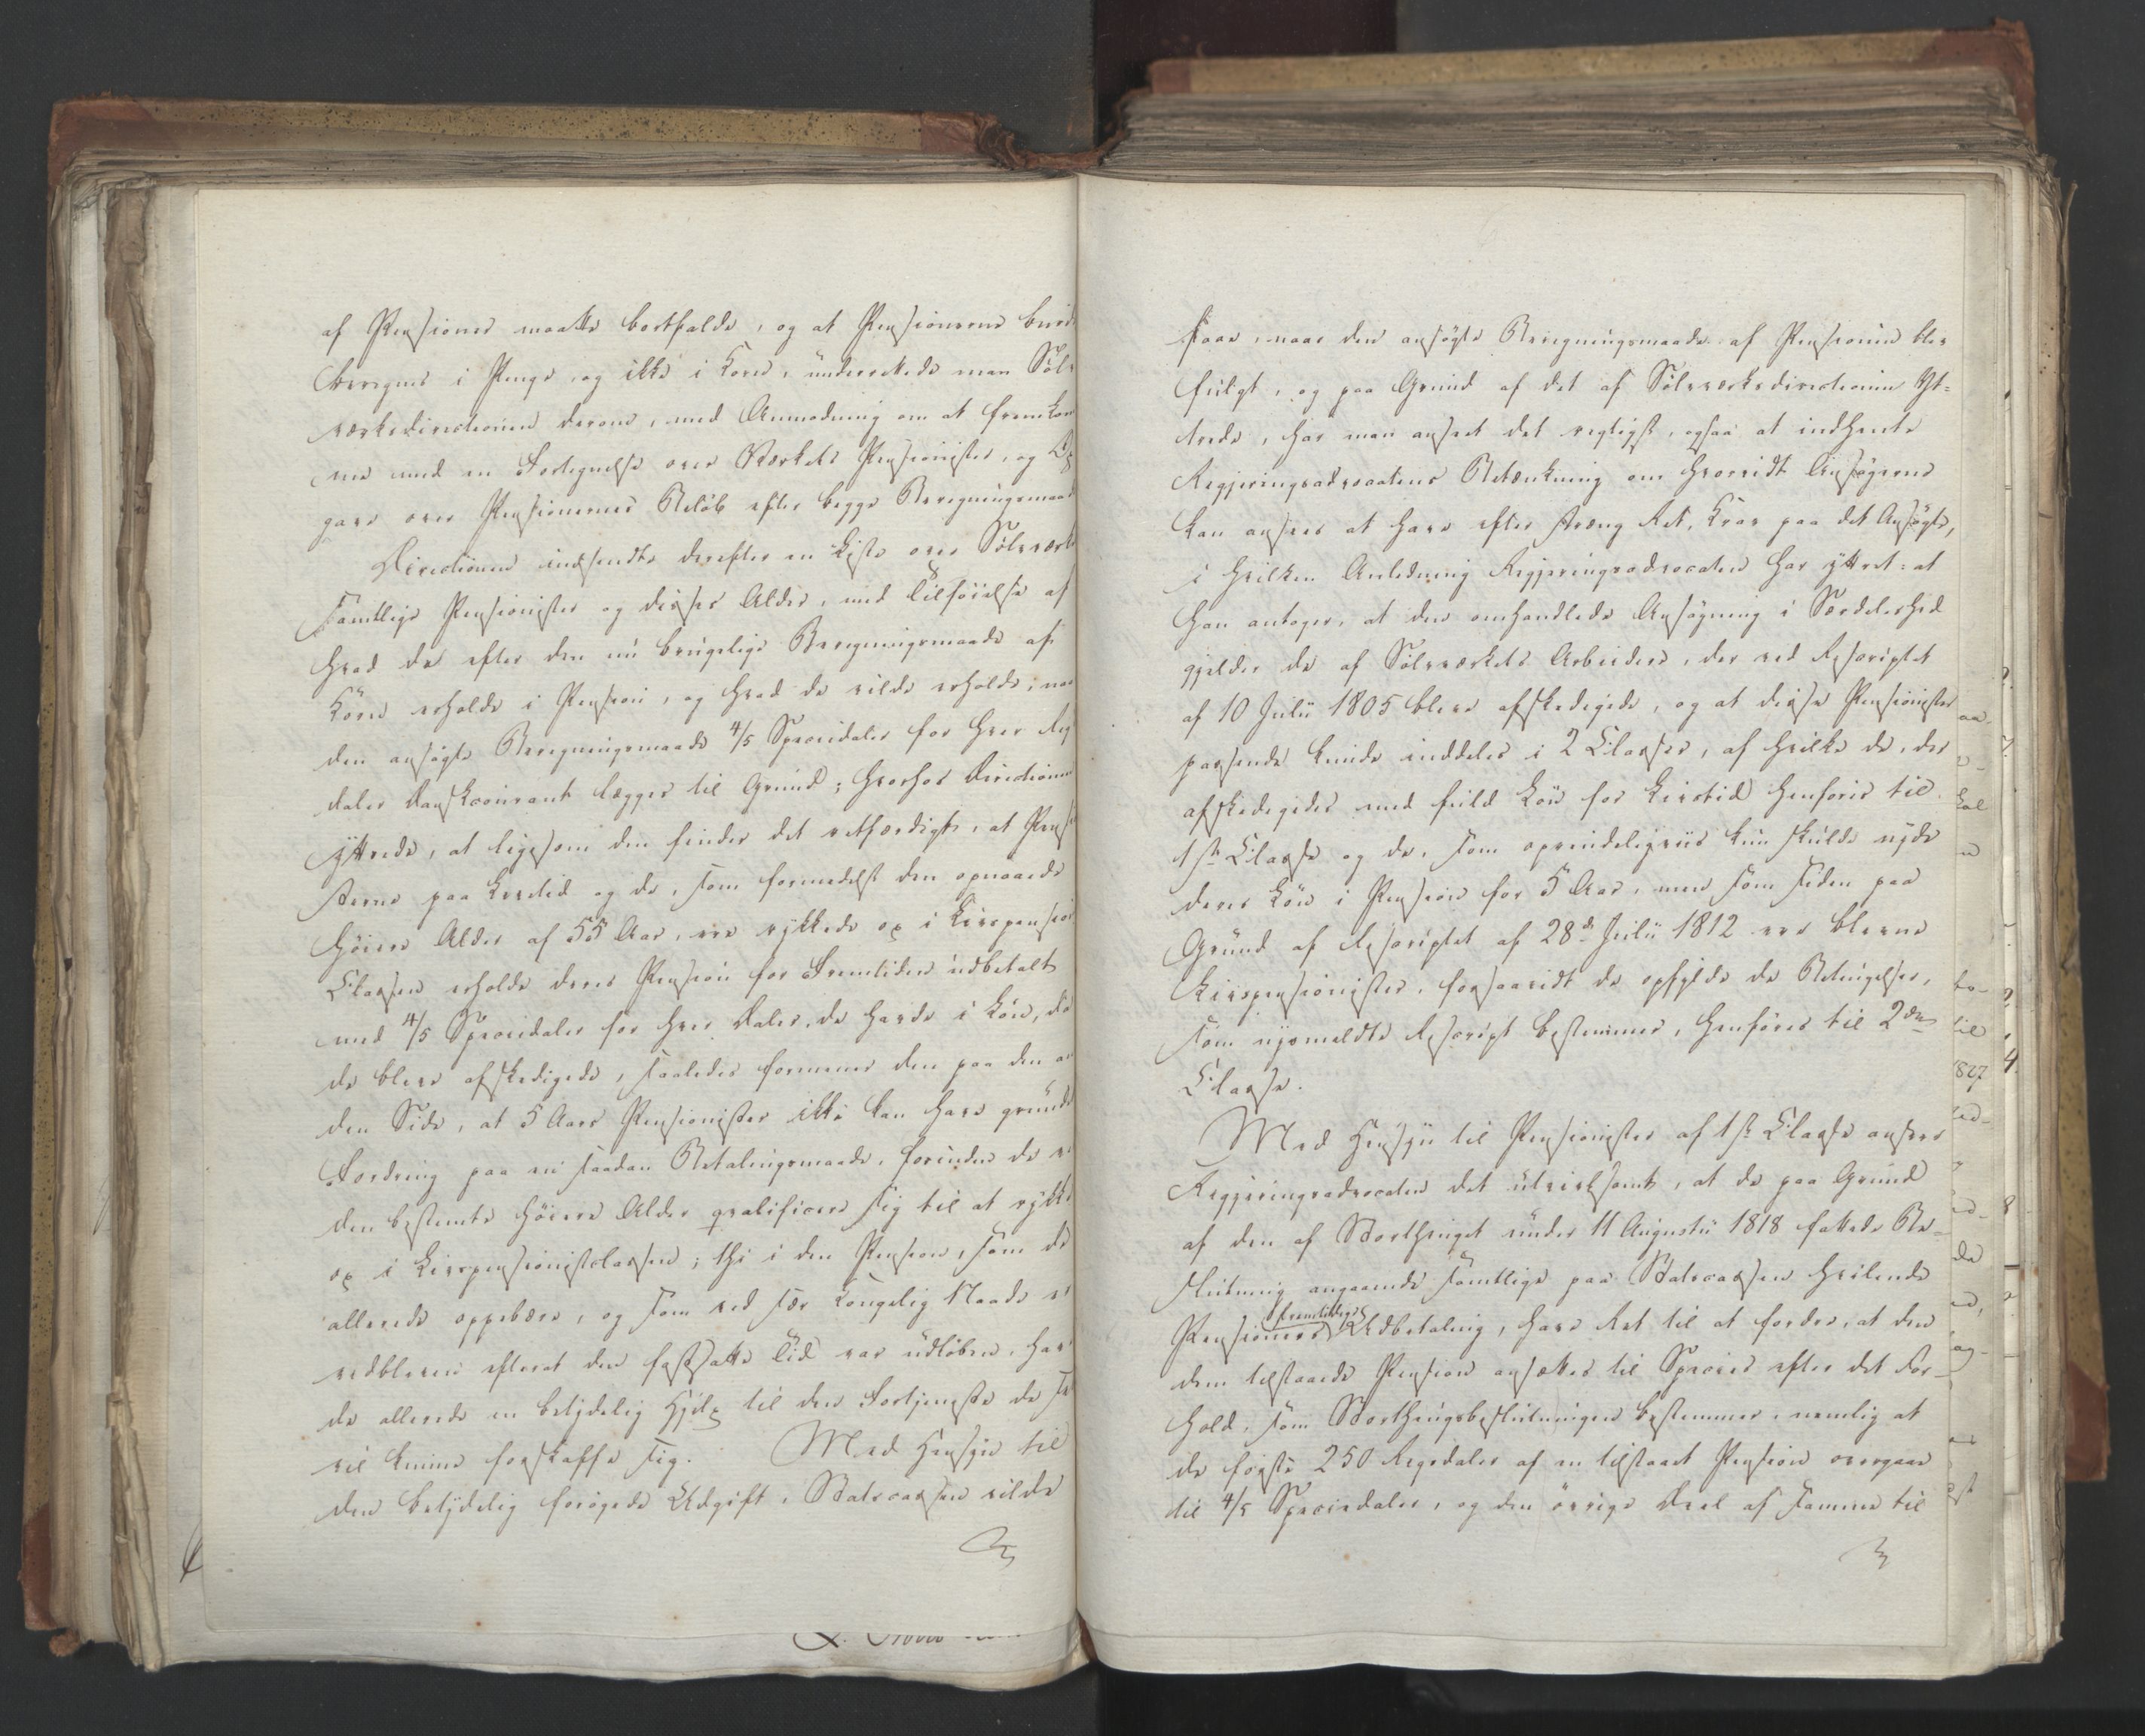 af Pensioner maatte bortfalde, og at Pensionerne burde
beregnes i Penge og ikke i Korn, underrettede man Sölv
værksdirectionen derom, med Anmodning om at fremkom
me med en Fortegnelse over Værkets Pensionister, og Op
gave over Pensionernes Beløb efter begge Beregningsmaad
Directionen indsendte derefter en Liste over Sölvværk
samtlige Pensionister og disses Alder, med Tilföielse af
hvad de efter den nu brugelige Beregningsmaade af
Korn erholde i Pension, og hvad de vilde erholde, naa
den ansögte Beregningsmaade 4/5 Speciedaler for hver Rigs
daler Danskcourant lægges til Grund; hvorhos Directionen
yttrede, at ligesom den finder det retfærdigt, at Pensi
sterne paa Livstid og de, som formedelst den opnaaede
höiere Alder af 55 Aar, ere rykkede op i Livspension
Classen erholde deres Pension for Fremtiden udbetalt
med 4/5 Speciedaler for hver Daler, de havde i Lön, da
de bleve afskedigede, saaledes formener den paa den an
den Side, at 5 Aars Pensionister ikke kan have grundet
Fordring paa en saadan Betalingsmaade, forinden de ve
den bestemte höiere Alder qvalificere sig til at rykke
op i Livspensionistclassen; thi i den Pension, som de
allerede oppebære, og som ved sær Kongelig Naade er
vedbleven efterat den fastsatte Tid var udlöben, have
de allerede en betydelig Hjelp til den Fortjeneste de se
vil kunne forskaffe sig. Med Hensyn til
den betydelig forögede Udgift, Statscassen vilde
faae, naar den ansögte Beregningsmaade af Pensionen blev
fulgt, og paa Grund af det af Sölvværksdirectionen Yt=
trede, har man anseet det rigtigst, ogsaa at indhente
Regjeringsadvocatens Betænkning om hvorvidt Ansögerne
kan ansees at have efter streng Ret, Krav paa det Ansögte,
i hvilken Anledning Regjeringsadvocaten har yttret: at
han antager, at den omhandlede Ansögning i Særdeleshed
gjelder de af Sölvværkets Arbeidere, der ved Rescriptet
af 10 Julii 1805 bleve afskedigede, og at disse Pensionister
passende kunde inddeles i 2 Classer, af hvilke de, der
afskedigedes med fuld Lön for Livstid henföres til
1ste Classe og de, som oprindeligviis kun skulde nyde
deres Lön i Pension for 5 Aar, men som siden paa
Grund af Rescriptet af 28de Julii 1812 ere blevne
Livspensionister, forsaavidt de opfylde de Betingelser,
som nysmeldte Rescript bestemmer, henföres til 2den
Classe.
Med Hensyn til Pensionister af 1ste Classe anseer
Regjeringsadvocaten det utvivlsomt, at de paa Grund
af den af Storthinget under 11 Augusti 1818 fattede Be=
slutning angaaende samtlige paa Statscassen hvilende
Pensioners fremtidige Udbetaling, have Ret til at fordre, at den
dem tilstaaede Pension ansættes til Species efter det For=
hold, som Storthingsbeslutningen bestemmer, nemlig at
de første 250 Rigsdaler af en tilstaaet Pension overgaae
til 4/5 Speciedaler, og den övrige Deel af samme til